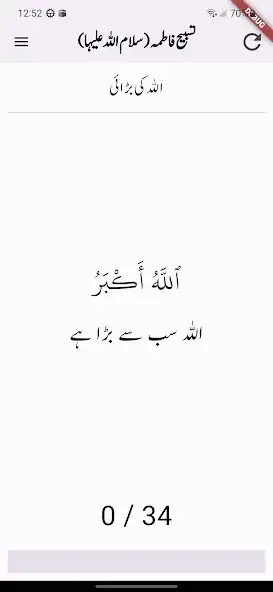 12:52
70
DEBUG
تسبیح فاطمہ (سلام اللہ علیہا)
اللہ کی بڑائی
ٱللَّٰهُ أَكْبَرُ
اللہ سب سے بڑا ہے
0 / 34